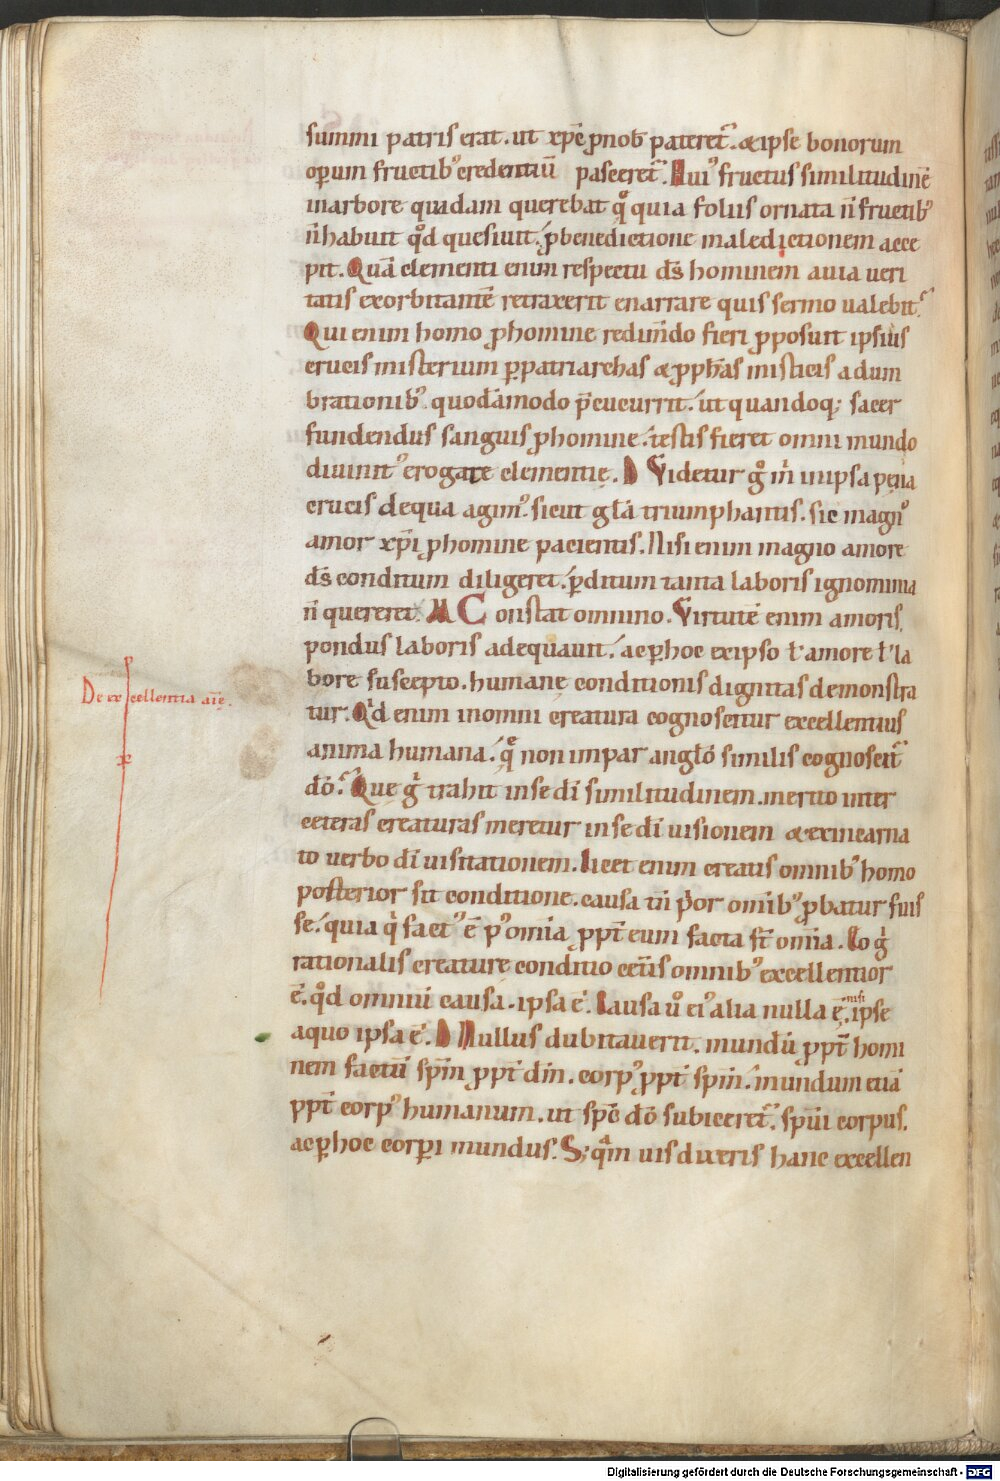 summi patris erat. ut xp̄c ꝓ nob̄ pateret᷑. & ipse bonorum
oꝑum fructib᷒ credentiū pasceret᷑. Hui᷒ fructus similitudinē
in arbore quadam querebat q̊ quia foliis ornata ñ fructib᷒
ñ habuit qd̊ quesiuit. ꝓ benedictione maledictionem acce
pit. Quā clementi enim respectu dſ̄ hominem a uia ueri
tatis exorbitantē retraxerit enarrare quis sermo ualebit᷑
Qui enim homo ꝓ homine redim̄do fieri ꝓposuit ipsius
crucis misterium ꝑ patriarchas & ꝓph̄as misticis adum
brationib᷒ quodāmodo p̄cucurrit. ut quandoq; sacer
fundendus sanguis ꝓ homine. testis fieret omni mundo
diuinit᷒ erogate clementię. D Videtur g̊ m̍ in ipsa pena
crucis de qua agim᷒. sicut gl̄a triumphantis. sic magn᷒
amor xp̄i ꝓ homine pacientis. Nisi enim magno amore
dſ̄ conditum diligeret. ꝑditum tanta laboris ignominia
ñ quereret. M Constat omnino. Virtutē enim amoris,
pondus laboris adequauit. ac ꝑ hoc ex ipso ł amore ł la
bore suscepto. humanę conditionis dignitas demonstra
tur. Qͥd enim in omni creatura cognoscitur excellentius
anima humana. qͤ non impar angło᷒ similis cognoscit᷑
dō. Que gͥ trahit in se dī similitudinem. merito inter
ceteras creaturas meretur in se dī uisionem & ex incarna
to uerbo dī uisitationem. Licet enim creatis omnib᷒ homo
posterior sit conditione. causa tn̄ p̍or omīb᷒ ꝓbatur fuis
se. quia qͥ fact᷒ ē p᷒ om̄ia ꝓpt̄ eum facta st̄ om̄ia. Eo gͥ
rationalis creature conditio cet̄is omnib᷒ excellentior
ē. qd̊ omniū causa. ipsa ē. Causa u̇̊ ei᷒ alia nulla ę. nisi ipse
a quo ipsa ē. D Nullus dubitauerit. mundū ꝓpt̄ homi
nem factū sp̄m ꝓpt̄ dm̄. corp᷒ ꝓpt̄ sp̄m. mundum etiā
ꝓpt̄ corp᷒ humanum. ut sp̄c dō subiceret᷑. sp̄ui corpus.
ac ꝑ hoc corꝑi mundus. S; qͣm uis diueris hanc excellen
De excellentia aīę.
Digitalisierung gefördert durch die Deutsche Forschungsgemeinschaft - DFG